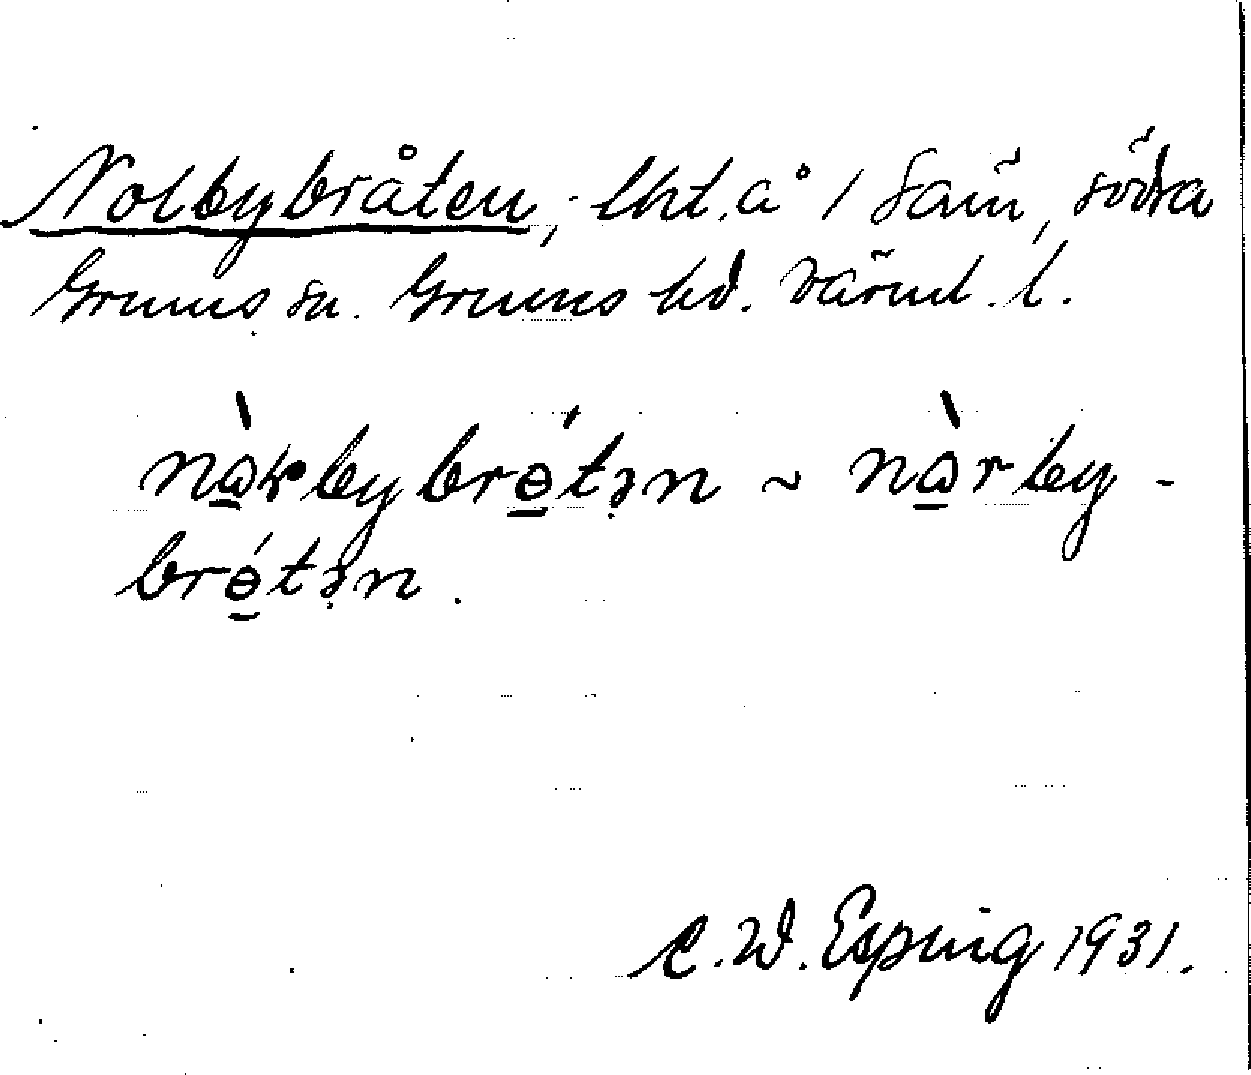 Nolbybråten, lht. å 1 Sam, södra
Grums sn. Grums hd. Värml. l.
nɷ̀ɽbybrɵ́tən ~ nɷ̀rby-
brɵ́tən.
C.W. Esping 1931.